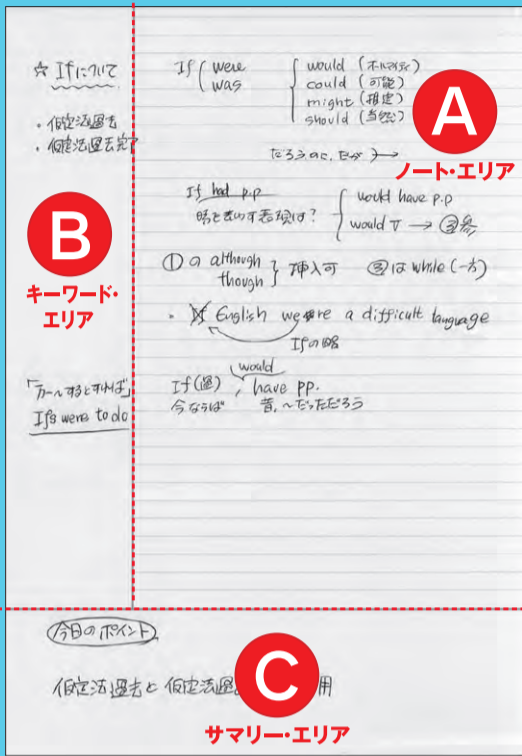 ☆ Ifについて
・仮定法過去
・仮定法過去完了
B
キーワード・
エリア
「万一～するとすれば」
If S were to do
If were would (
was could (可能)
might (推定)
should (当然)
A
ノート・エリア
だろうに、だが
If had p.p would have p.p
時を表わす表現は? would V → ③参
① の although 挿入可 ③は while (一方)
though
・ If English were a difficult language
Ifの略
would
If (過), have pp.
今ならば 昔、～だっただろう
今日のポイント
仮定法過去と 仮定法過 用
C
サマリー・エリア